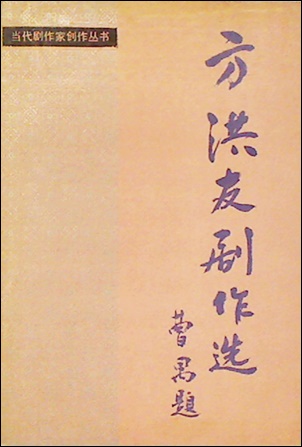 当代剧作家创作丛书
方洪友剧作选
曹禺题